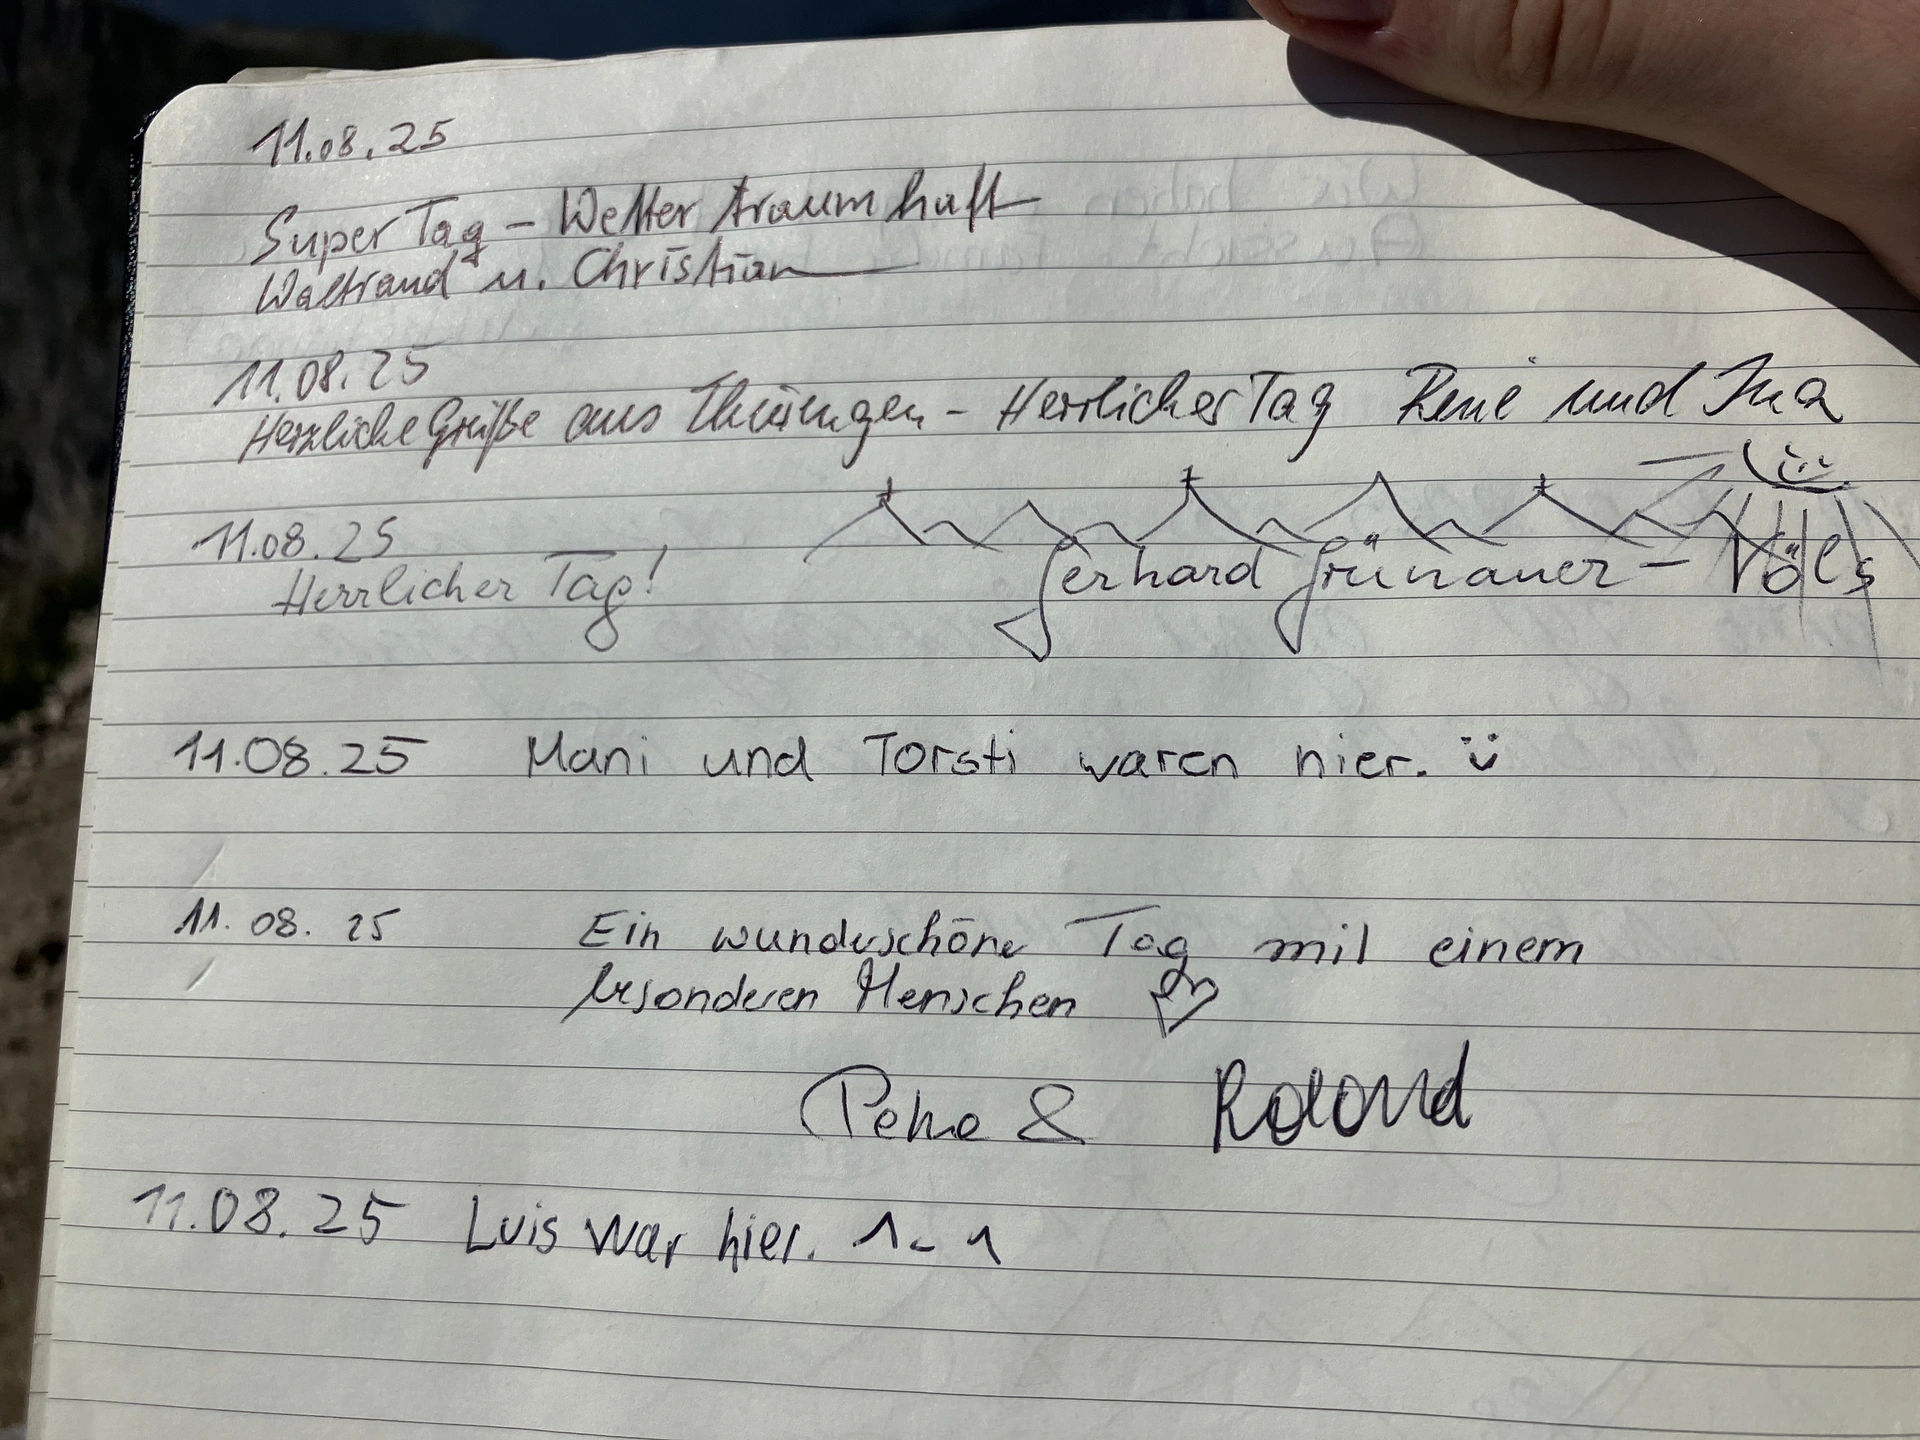 11.08.25
Super Tag - Wetter traumhaft
Waltraud u. Christian
11.08.25
Herzliche Grüße aus Thüringen - Herrlicher Tag René und Ina
11.08.25
Herrlicher Tag! Gerhard Grünauer - Völs
11.08.25 Mani und Torsti waren hier. ü
11.08.25 Ein wunderschöner Tag mit einem
besonderen Menschen ♡
Petra & Roland
11.08.25 Luis war hier. ^-^